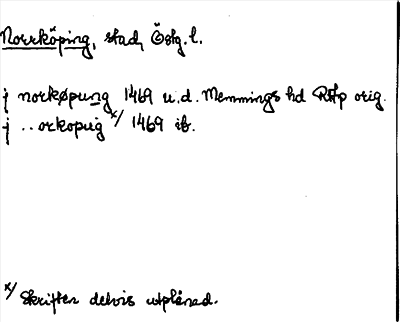 Norrköping, stad, Östg. l.
j norkøpung 1469 u.d. Memmings hd RAp orig.
j ..orkopūg x/ 1469 ib.
x/ Skriften delvis utplånad.